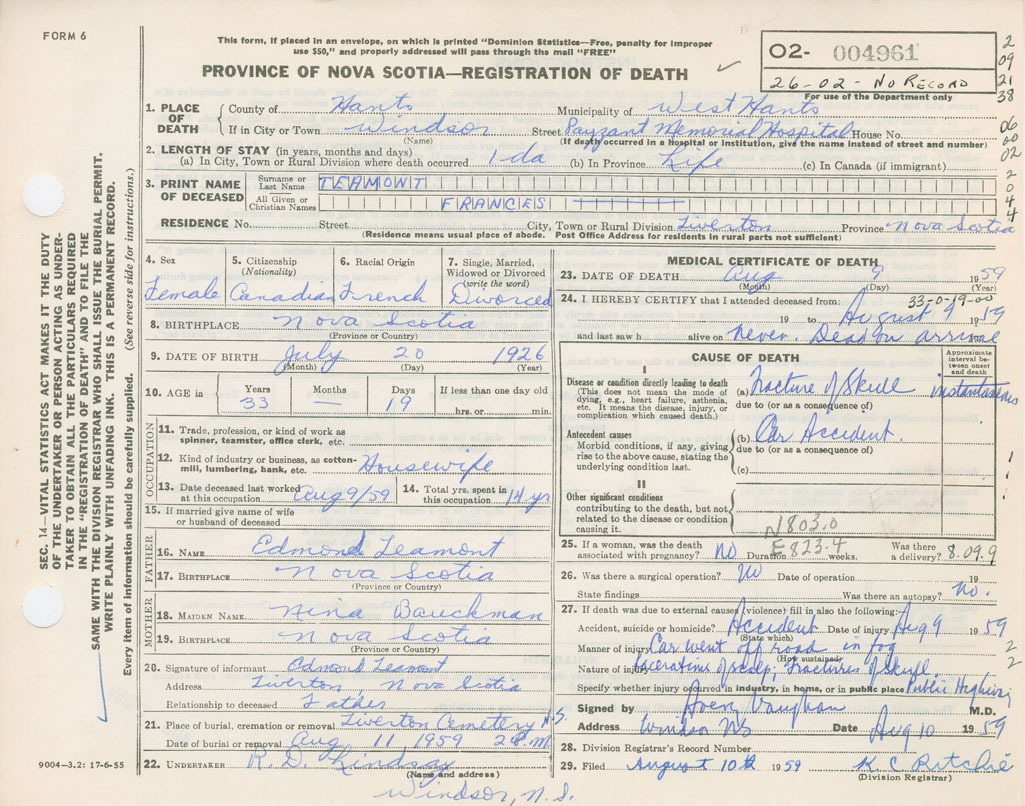 FORM 6
This form, if placed in an envelope, on which is printed "Dominion Statistics—Free, penalty for improper
use $50," and properly addressed will pass through the mail "FREE"
PROVINCE OF NOVA SCOTIA—REGISTRATION OF DEATH
02- 004961
26-02- No Record
For use of the Department only
2
09
21
38
06
00
02
2
0
4
4
1. PLACE OF DEATH County of Hants Municipality of West Hants
If in City or Town Windsor Street Payzant Memorial Hospital House No.
(Name) (If death occurred in a Hospital or Institution, give the name instead of street and number)
2. LENGTH OF STAY (in years, months and days)
(a) In City, Town or Rural Division where death occurred 1 da (b) In Province Life (c) In Canada (if immigrant)
3. PRINT NAME OF DECEASED Surname or Last Name TEAMONT
All Given or Christian Names FRANCES
RESIDENCE No. Street City, Town or Rural Division Tiverton Province Nova Scotia
(Residence means usual place of abode. Post Office Address for residents in rural parts not sufficient)
4. Sex Female
5. Citizenship (Nationality) Canadian
6. Racial Origin French
7. Single, Married, Widowed or Divorced (write the word) Divorced
8. BIRTHPLACE Nova Scotia
(Province or Country)
9. DATE OF BIRTH July 20 1926
(Month) (Day) (Year)
10. AGE in Years 33 Months Days 19 If less than one day old
hrs. or min.
OCCUPATION
11. Trade, profession, or kind of work as
spinner, teamster, office clerk, etc.
12. Kind of industry or business, as cotton-
mill, lumbering, bank, etc. Housewife
13. Date deceased last worked
at this occupation Aug 9/59
14. Total yrs. spent in
this occupation 14 yr
15. If married give name of wife
or husband of deceased
FATHER
16. NAME Edmond Teamont
17. BIRTHPLACE Nova Scotia
(Province or Country)
MOTHER
18. MAIDEN NAME Nina Bauckman
19. BIRTHPLACE Nova Scotia
(Province or Country)
20. Signature of informant Edmond Teamont
Address Tiverton, Nova Scotia
Relationship to deceased Father
21. Place of burial, cremation or removal Tiverton Cemetery N.S.
Date of burial or removal Aug 11 1959 2 P.M
22. UNDERTAKER R. D. Lindsay
(Name and address)
Windsor, N.S.
MEDICAL CERTIFICATE OF DEATH
23. DATE OF DEATH Aug 9 1959
(Month) (Day) (Year)
33-0-19-00
24. I HEREBY CERTIFY that I attended deceased from:
19 to August 9 1959
and last saw h alive on never. Dead on arrival
CAUSE OF DEATH
Approximate interval between onset and death
I
Disease or condition directly leading to death
(This does not mean the mode of
dying, e.g., heart failure, asthenia,
etc. It means the disease, injury, or
complication which caused death.)
(a) Fracture of Skull instantaneous
due to (or as a consequence of)
Antecedent causes
Morbid conditions, if any, giving
rise to the above cause, stating the
underlying condition last.
(b) Car Accident.
due to (or as a consequence of)
(c)
II
Other significant conditions
contributing to the death, but not
related to the disease or condition
causing it.
N1803.0
E823.4
25. If a woman, was the death
associated with pregnancy? No Duration weeks. Was there
a delivery? 8.09.9
26. Was there a surgical operation? No Date of operation 19
State findings Was there an autopsy? No.
27. If death was due to external causes (violence) fill in also the following:
Accident, suicide or homicide? Accident Date of injury Aug 9 1959
(State which)
Manner of injury Car went off road in fog 2
(How sustained)
Nature of injury Lacerations of scalp, fractures of Skull. 2
Specify whether injury occurred in industry, in home, or in public place Public Highway
Signed by Avery Vaughan M.D.
Address Windsor NS Date Aug 10 1959
28. Division Registrar's Record Number
29. Filed August 10th 1959 K C Ritchie
(Division Registrar)
SEC. 14—VITAL STATISTICS ACT MAKES IT THE DUTY
OF THE UNDERTAKER OR PERSON ACTING AS UNDER-
TAKER TO OBTAIN ALL THE PARTICULARS REQUIRED
IN THE "REGISTRATION OF DEATH" AND TO FILE THE
SAME WITH THE DIVISION REGISTRAR WHO SHALL ISSUE THE BURIAL PERMIT.
WRITE PLAINLY WITH UNFADING INK. THIS IS A PERMANENT RECORD.
Every item of information should be carefully supplied. (See reverse side for instructions.)
9004-3.2: 17-6-55